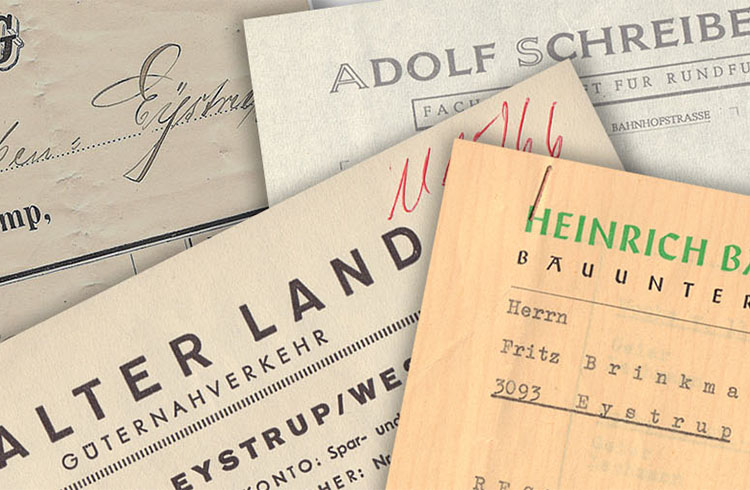 G
Eystrup
mp,
ADOLF SCHREIBE
FACH
T FÜR RUNDFU
BAHNHOFSTRASSE
ALTER LAND
GÜTERNAHVERKEHR
EYSTRUP/WES
KONTO: Spar- und
HER: Nr
HEINRICH BA
BAUUNTER
Herrn
Fritz Brinkma
3093 Eystrup
REC